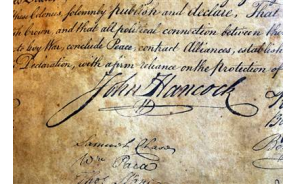 these Colonies, solemnly publish and declare, That
Crown, and that all political connection between the
levy War, conclude Peace, contract Alliances, establish
Declaration, with a firm reliance on the protection of
John Hancock
Samuel Chase
Wm Paca
Thos Stone